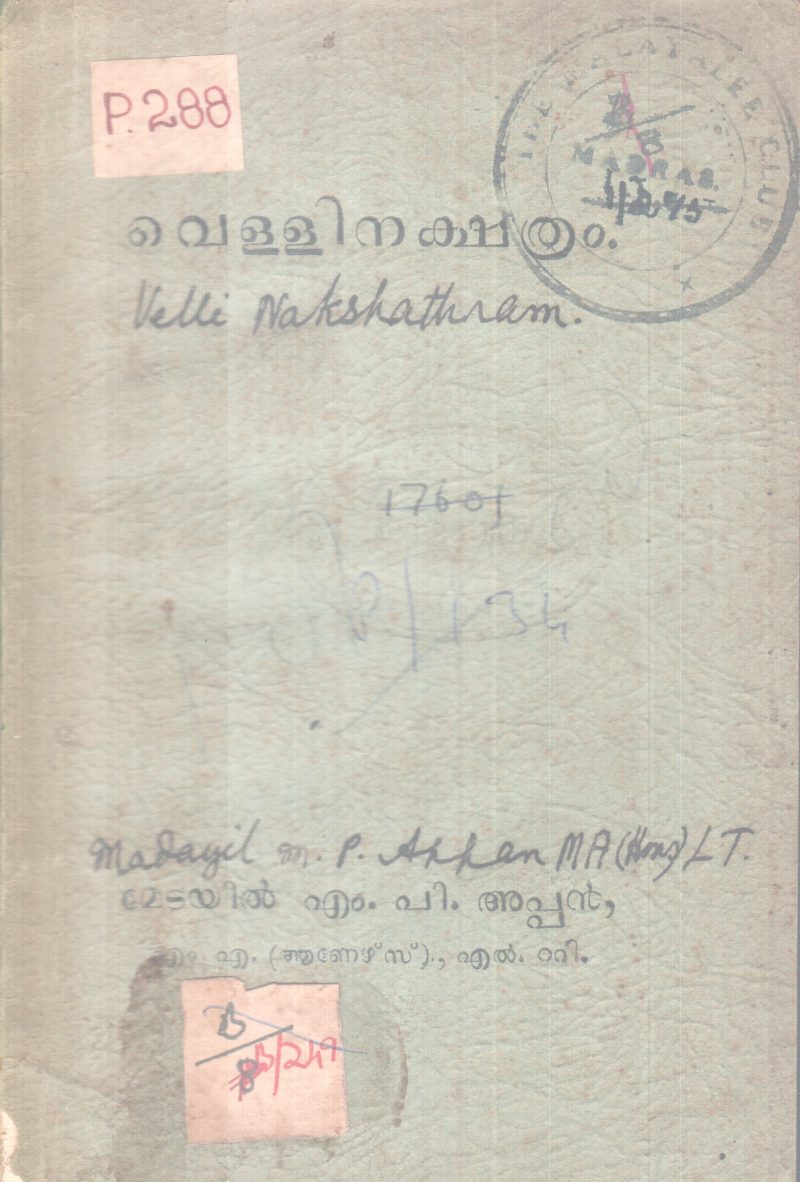 P. 288
THE MALAYALEE CLUB
MADRAS.
വെള്ളിനക്ഷത്രം.
Velli Nakshathram.
17601
Madayil M. P. Appan MA (Hons) L T.
മേടയിൽ എം. പി. അപ്പൻ,
എം. എ. (ആണേഴ്സ്)., എൽ. ററി.
B
8
B/247